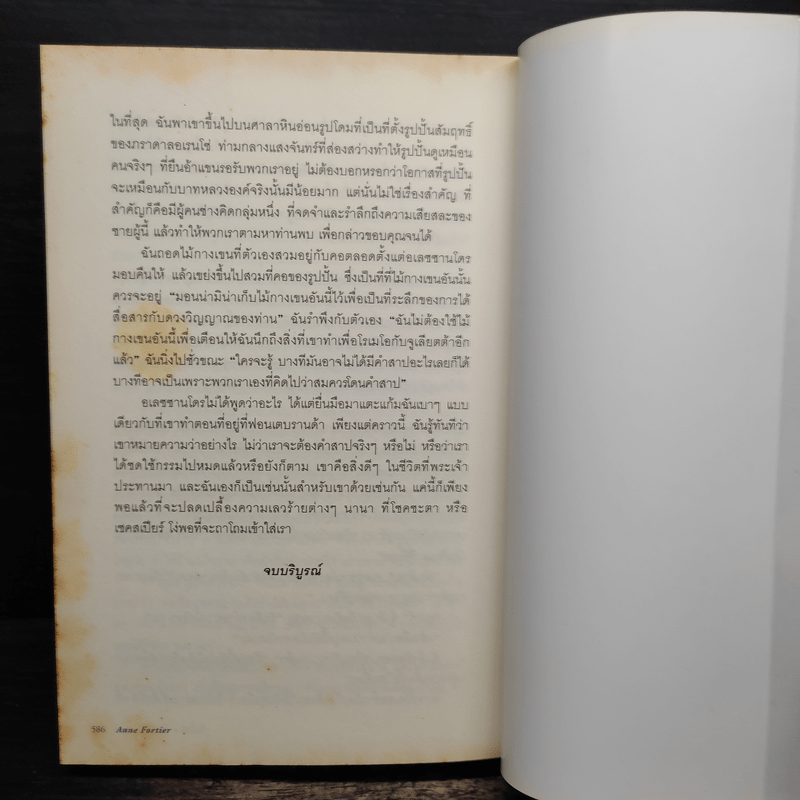 ในที่สุด ฉันพาเขาขึ้นไปบนศาลาหินอ่อนรูปโดมที่เป็นที่ตั้งรูปปั้นสัมฤทธิ์
ของภราดาลอเรนโซ่ ท่ามกลางแสงจันทร์ที่ส่องสว่างทำให้รูปปั้นดูเหมือน
คนจริงๆ ที่ยืนอ้าแขนรอรับพวกเราอยู่ ไม่ต้องบอกหรอกว่าโอกาสที่รูปปั้น
จะเหมือนกับบาทหลวงองค์จริงนั้นมีน้อยมาก แต่นั่นไม่ใช่เรื่องสำคัญ ที่
สำคัญก็คือมีผู้คนช่างคิดกลุ่มหนึ่ง ที่จดจำและรำลึกถึงความเสียสละของ
ชายผู้นี้ แล้วทำให้พวกเราตามมหาท่านพบ เพื่อกล่าวขอบคุณจนได้
ฉันถอดไม้กางเขนที่ตัวเองสวมอยู่กับคอตลอดตั้งแต่อเลซซานโดร
มอบคืนให้ แล้วเขย่งขึ้นไปสวมที่คอของรูปปั้น ซึ่งเป็นที่ที่ไม้กางเขนอันนั้น
ควรจะอยู่ “มอนน่ามิน่าเก็บไม้กางเขนอันนี้ไว้เพื่อเป็นที่ระลึกของการได้
สื่อสารกับดวงวิญญาณของท่าน” ฉันรำพึงกับตัวเอง “ฉันไม่ต้องใช้ไม้
กางเขนอันนี้เพื่อเตือนให้ฉันนึกถึงสิ่งที่เขาทำเพื่อโรเมโอกับจูเลียตต้าอีก
แล้ว” ฉันนิ่งไปชั่วขณะ “ใครจะรู้ บางทีมันอาจไม่ได้มีคำสาปอะไรเลยก็ได้
บางทีอาจเป็นเพราะพวกเราเองที่คิดไปว่าสมควรโดนคำสาป”
อเลซซานโดรไม่ได้พูดว่าอะไร ได้แต่ยื่นมือมาแตะแก้มฉันเบาๆ แบบ
เดียวกับที่เขาทำตอนที่อยู่ที่ฟอนเตบรานด้า เพียงแต่คราวนี้ ฉันรู้ทันทีว่า
เขาหมายความว่าอย่างไร ไม่ว่าเราจะต้องคำสาปจริงๆ หรือไม่ หรือว่าเรา
ได้ชดใช้กรรมไปหมดแล้วหรือยังก็ตาม เขาคือสิ่งดีๆ ในชีวิตที่พระเจ้า
ประทานมา และฉันเองก็เป็นเช่นนั้นสำหรับเขาด้วยเช่นกัน แค่นี้ก็เพียง
พอแล้วที่จะปลดเปลื้องความเลวร้ายต่างๆ นานา ที่โชคชะตา หรือ
เชคสเปียร์ โง่พอที่จะถาโถมเข้าใส่เรา
จบบริบูรณ์
586 Anne Fortier